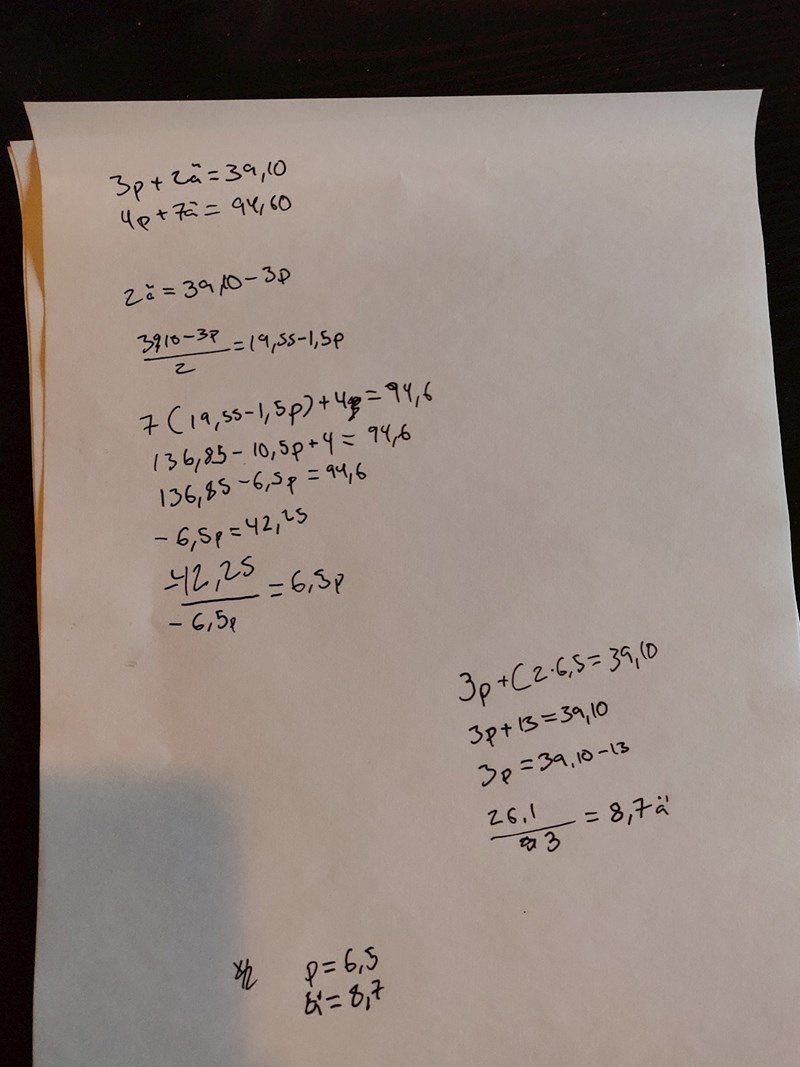 3p + 2ä = 39,10
4p + 7ä = 94,60
2ä = 39,10 - 3p
39,10 - 3p / 2 = 19,55 - 1,5p
7 (19,55 - 1,5p) + 4p = 94,6
136,85 - 10,5p + 4 = 94,6
136,85 - 6,5p = 94,6
- 6,5p = 42,25
-42,25 / - 6,5p = 6,5p
3p + (2 · 6,5 = 39,10
3p + 13 = 39,10
3p = 39,10 - 13
26,1 / 3 = 8,7ä
p = 6,5
ä = 8,7